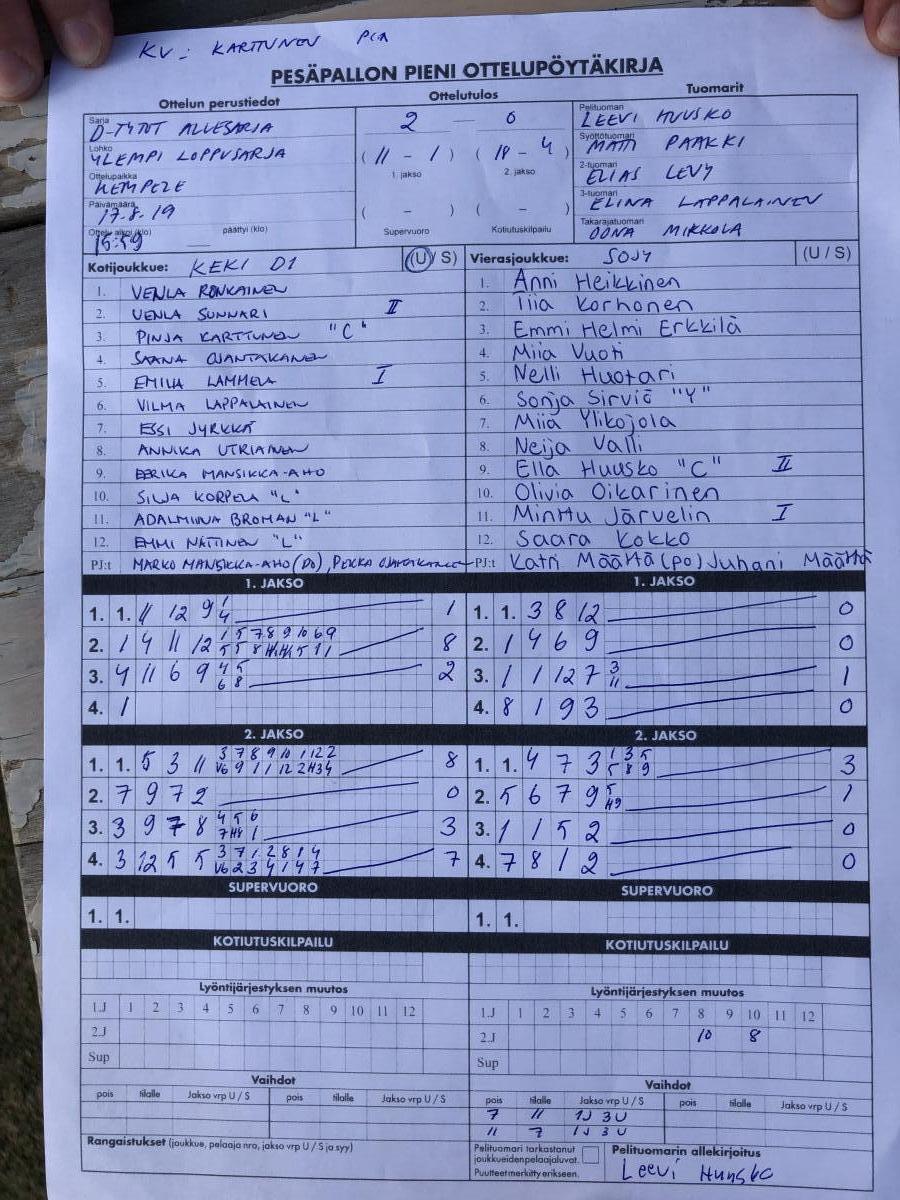 KV: KARTTUNEN PIA
PESÄPALLON PIENI OTTELUPÖYTÄKIRJA
Ottelun perustiedot
Sarja
D-TYTÖT ALUESARJA
Lohko
YLEMPI LOPPUSARJA
Ottelupaikka
KEMPELE
Päivämäärä
17.8.19
Ottelu alkoi (klo) päättyi (klo)
15:59
Ottelutulos
2 — 0
( 11 - 1 ) ( 18 - 4 )
1. jakso 2. jakso
( - ) ( - )
Supervuoro Kotiutuskilpailu
Tuomarit
Pelituomari
LEEVI HUUSKO
Syöttötuomari
MATTI PAAKKI
2-tuomari
ELIAS LEVY
3-tuomari
ELINA LAPPALAINEN
Takarajatuomari
OONA MIKKOLA
Kotijoukkue: KEKI D1 (U / S)
1. VENLA RONKAINEN
2. VENLA SUNNARI II
3. PINJA KARTTUNEN "C"
4. SAANA OJANTAKANEN
5. EMILIA LAMMELA I
6. VILMA LAPPALAINEN
7. ESSI JYRKKÄ
8. ANNIKA UTRIAINEN
9. EERIKA MANSIKKA-AHO
10. SILJA KORPELA "L"
11. ADALMIINA BROMAN "L"
12. EMMI NÄTTINEN "L"
PJ:t MARKO MANSIKKA-AHO (PO), PEKKA OJANTAKANEN
Vierasjoukkue: SOJY (U / S)
1. Anni Heikkinen
2. Tiia Korhonen
3. Emmi Helmi Erkkilä
4. Miia Vuoti
5. Nelli Huotari
6. Sonja Sirviö "Y"
7. Miia Ylikojola
8. Neija Valli
9. Ella Huusko "C" II
10. Olivia Oikarinen
11. Minttu Järvelin I
12. Saara Kokko
PJ:t Katri Määttä (po) Juhani Määttä
1. JAKSO
1. 1. 11 12 9 1 4 1
2. 1 4 11 12 8
3. 4 11 6 9 4 5 6 8 2
4. 1
1. JAKSO
1. 1. 3 8 12 0
2. 1 4 6 9 0
3. 1 11 2 7 3 11 1
4. 8 1 9 3 0
2. JAKSO
1. 1. 5 3 11 3 7 8 9 10 1 12 2 8
2. 7 9 7 2 0
3. 3 9 7 8 4 5 6 3
4. 3 12 5 5 3 7 1 2 8 1 4 7
2. JAKSO
1. 1. 4 7 3 1 3 5 5 8 9 3
2. 5 6 7 9 5 1
3. 1 1 5 2 0
4. 7 8 1 2 0
SUPERVUORO
1. 1.
SUPERVUORO
1. 1.
KOTIUTUSKILPAILU
KOTIUTUSKILPAILU
Lyöntijärjestyksen muutos
1.J 1 2 3 4 5 6 7 8 9 10 11 12
2.J
Sup
Lyöntijärjestyksen muutos
1.J 1 2 3 4 5 6 7 8 9 10 11 12
2.J 10 8
Sup
Vaihdot
pois tilalle Jakso vrp U / S pois tilalle Jakso vrp U / S
Vaihdot
pois tilalle Jakso vrp U / S pois tilalle Jakso vrp U / S
7 11 1J 3U
11 7 1J 3U
Rangaistukset (joukkue, pelaaja nro, jakso vrp U / S ja syy)
Pelituomari tarkastanut
joukkueidenpelaajaluvat.
Puutteet merkitty erikseen.
Pelituomarin allekirjoitus
Leevi Huusko